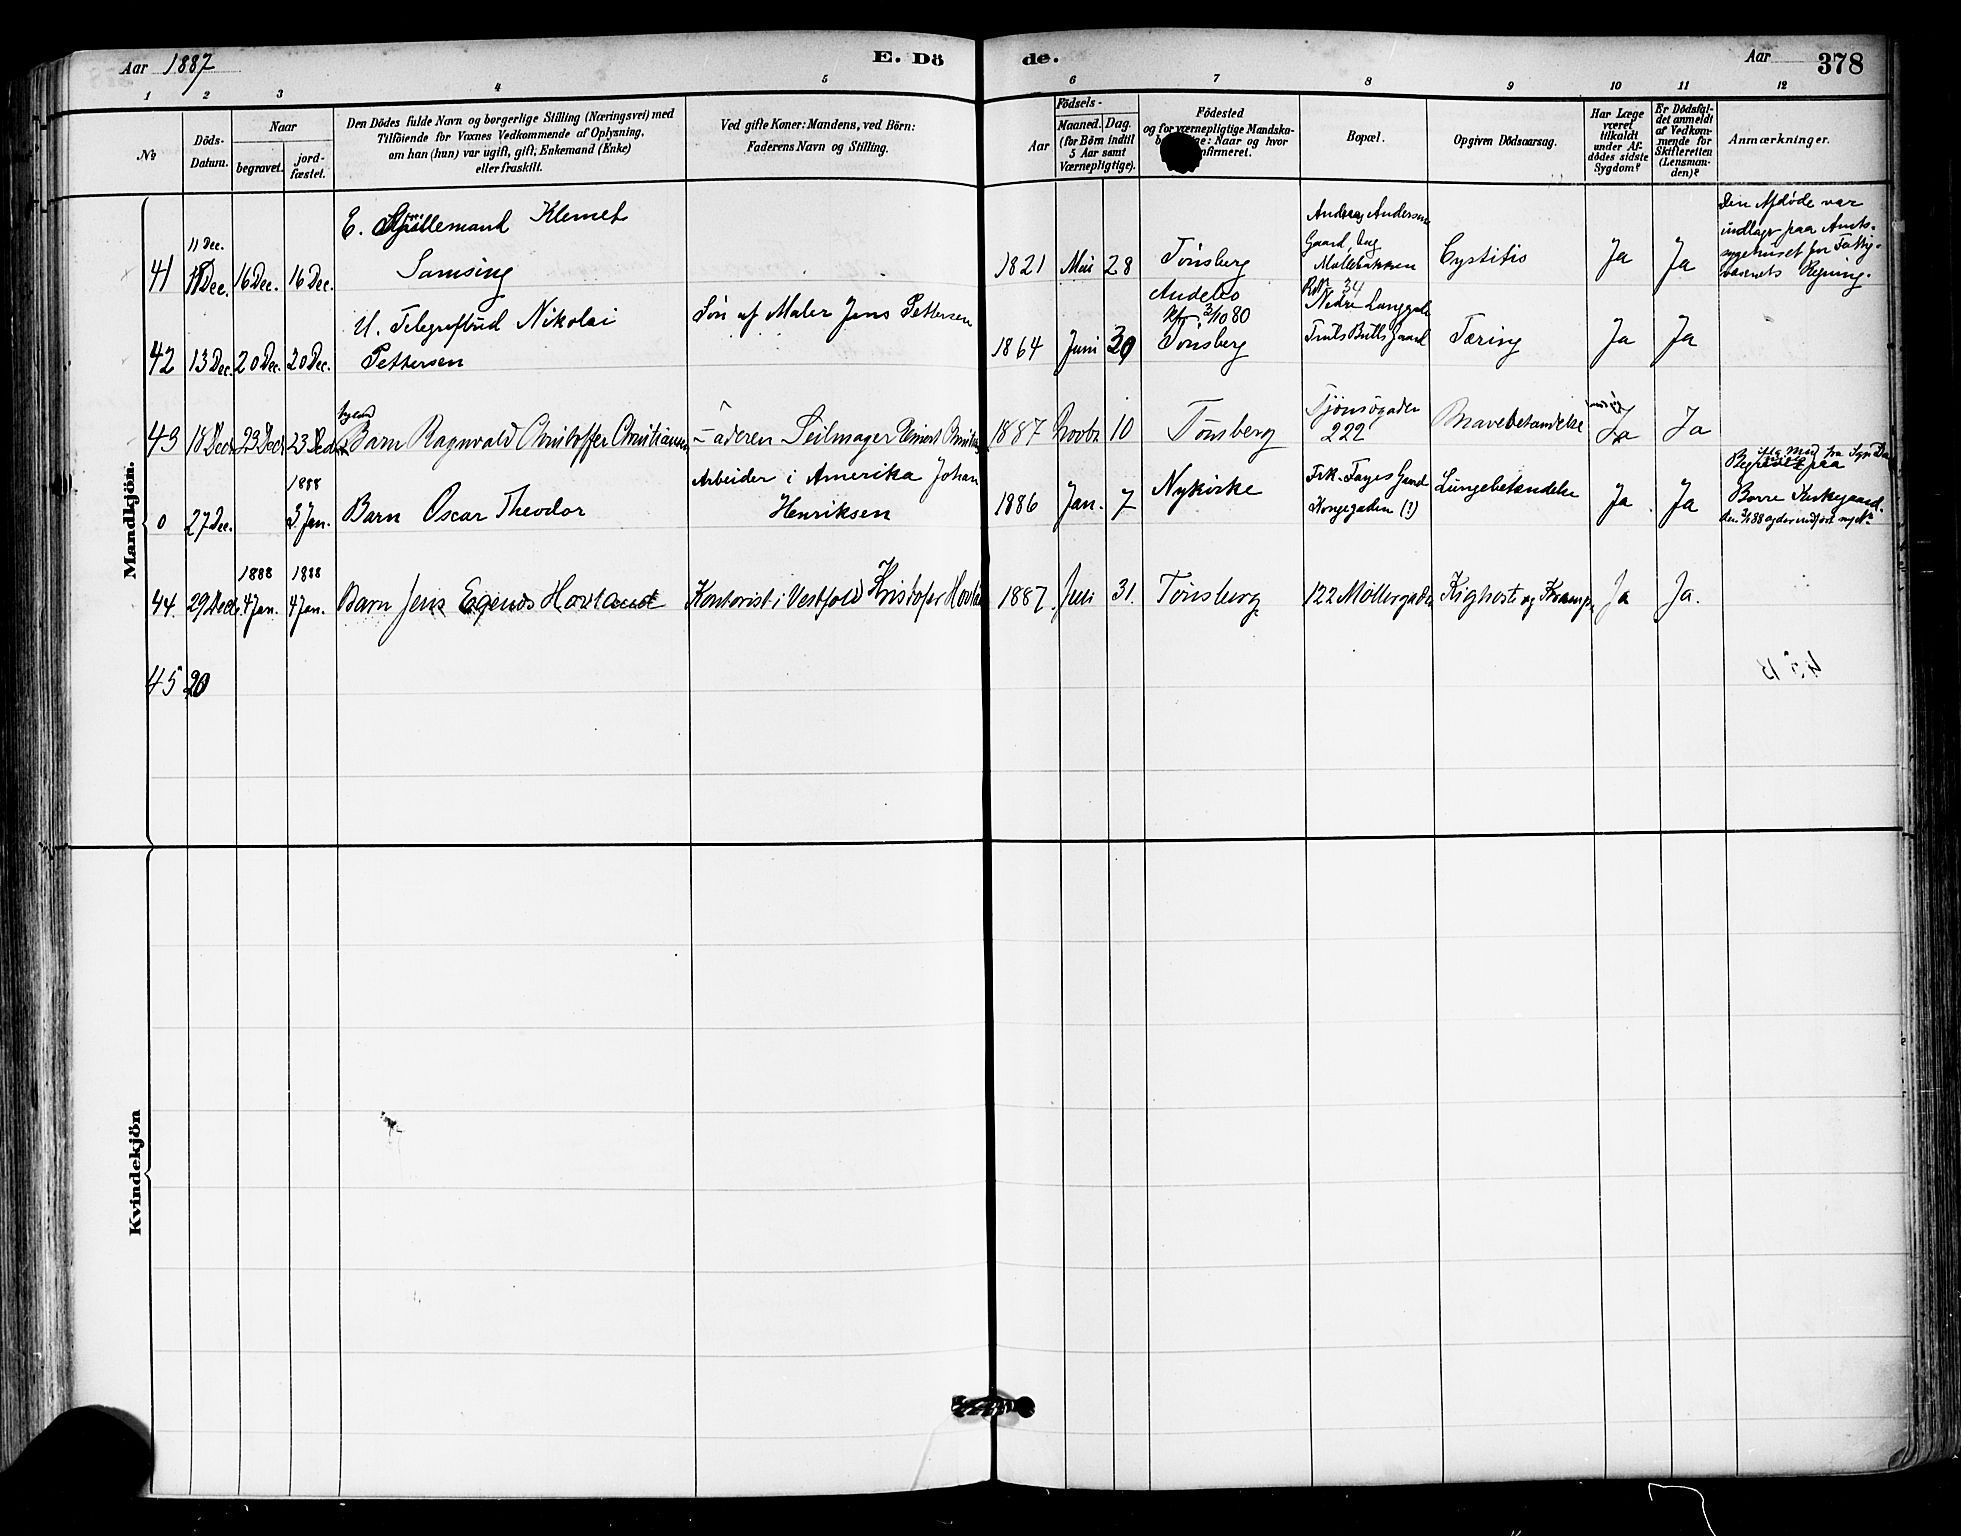 Aar 1887
E. Dö
de.
Aar
378
1 2 3 4 5 6 7 8 9 10 11 12
No
Döds-
Datum.
Naar
begravet.
jord-
fæstet.
Den Dödes fulde Navn og borgerlige Stilling (Næringsvei) med
Tilföiende for Voxnes Vedkommende af Oplysning,
om han (hun) var ugift, gift, Enkemand (Enke)
eller fraskilt.
Ved gifte Koner: Mandens, ved Börn:
Faderens Navn og Stilling.
Födsels-
Aar
Maaned. Dag.
(for Börn indtil
5 Aar samt
Værnepligtige).
Födested
og for værnepligtige Mandska-
Naar og hvor
Bopæl.
Opgiven Dödsaarsag.
Har Læge
været
tilkaldt
under Af-
dödes sidste
Sygdom?
Er Dödsfal-
det anmeldt
af Vedkom-
mende for
Skifteretten
(Lensman-
den)?
Anmærkninger.
Mandkjön.
41
11 Dec.
16 Dec.
16 Dec.
E. Klemet
Samsing
1821 Mai 28
Tönsberg
Andreas Andersens
Gaard,
Möllebakken
Cystitis
Ja
Ja
Den Afdöde var
indlagt paa Amts-
sygehuset for Fattig-
væsenets Regning.
42
13 Dec.
20 Dec.
20 Dec.
U. Telegrafbud Nikolai
Pettersen
Sön af Maler Jens Pettersen
1864 Juni 29
Andebo
Kf. 3/10 80
Tönsberg
34
Nedre Langgade
Truls Bulls Gaard
Tæring
Ja
Ja
43
18 Dec.
23 Dec.
23 Dec.
Barn Ragnvald Christoffer
Faderen Seilmager
1887 Novbr 10
Tönsberg
Tjönsögaden
222
Mavebetændelse
Ja
Ja
0
27 Dec.
1888
3 Jan.
Barn Oscar Theodor
Arbeider i Amerika Johan
Henriksen
1886 Jan. 7
Nykirke
Gaard
Kongegaden (?)
Lungebetændelse
Ja
Ja
Begravet paa
Borre Kirkegaard
44.
29 Decb.
1888
4 Jan.
1888
4 Jan.
Barn Jens Hovland
Kontorist i Vestfold Kristofer
1887. Juli 31.
Tönsberg
122 Möllergaden
Kighoste og Krampe
Ja
Ja.
45 20
Kvindekjön